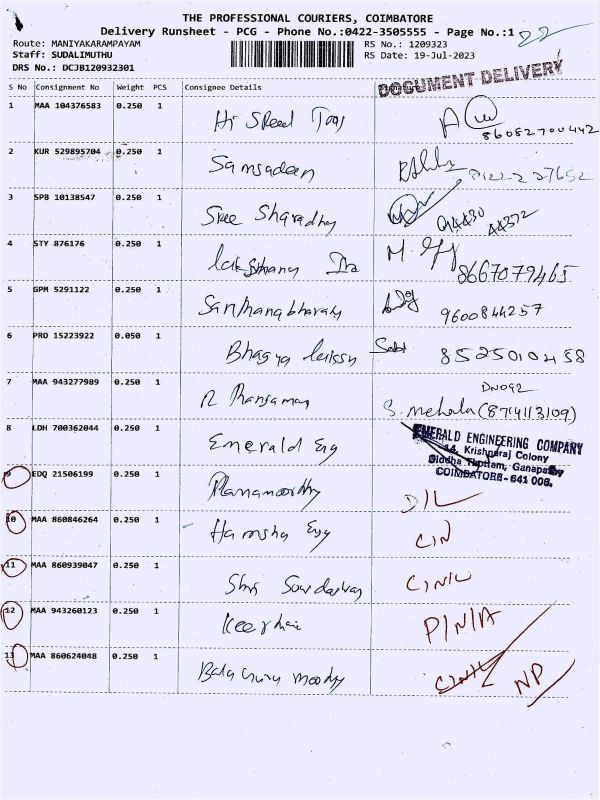 THE PROFESSIONAL COURIERS, COIMBATORE
Delivery Runsheet - PCG - Phone No.:0422-3505555 - Page No.:1
22
Route: MANIYAKARAMPAYAM
RS No.: 1209323
Staff: SUDALIMUTHU
RS Date: 19-Jul-2023
DRS No.: DCJB120932301
DOCUMENT DELIVERY
S No Consignment No Weight PCS Consignee Details
1 MAA 104376583 0.250 1 Hi Speed Tools
86082700442
2 KUR 529895704 0.250 1 Samsadeen
81222 27652
3 SPB 10138547 0.250 1 Sree Sharadhy
94430 44372
4 STY 876176 0.250 1
8667079465
5 GPM 5291122 0.250 1 Santhanabharathy
9600844257
6 PRO 15223922 0.050 1 Bhagya
8525010458
7 MAA 943277989 0.250 1
DNO92
S. Mehala (8714113109)
8 LDH 700362044 0.250 1 Emerald Eng
EMERALD ENGINEERING COMPANY
14, Krishnaraj Colony
Siddha Thottam, Ganapathy
COIMBATORE - 641 006.
9 EDQ 21506199 0.250 1
D/L
10 MAA 860846264 0.250 1 Hamsha Eng
C/N
11 MAA 860939047 0.250 1 Shri
C/N/C
12 MAA 943260123 0.250 1
P/N/A
13 MAA 860624048 0.250 1 Bala Guru moorthy
NP